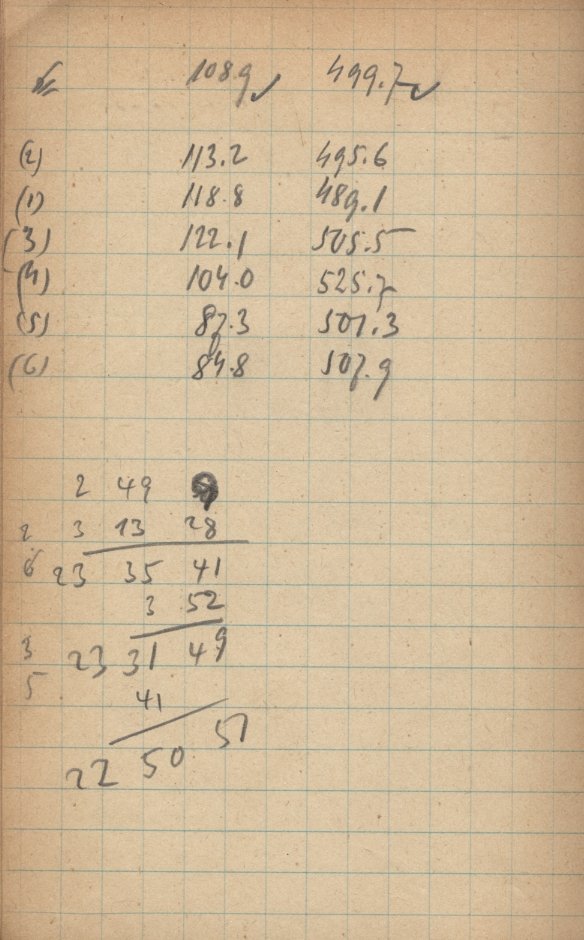 108.9 ✓ 499.7 ✓
(2) 113.2 495.6
(1) 118.8 489.1
(3) 122.1 505.5
(4) 104.0 525.7
(5) 87.3 501.3
(6) 84.8 507.9
2 49 9
2 3 13 28
6 23 35 41
3 52
3 23 31 49
5 41
51
22 50